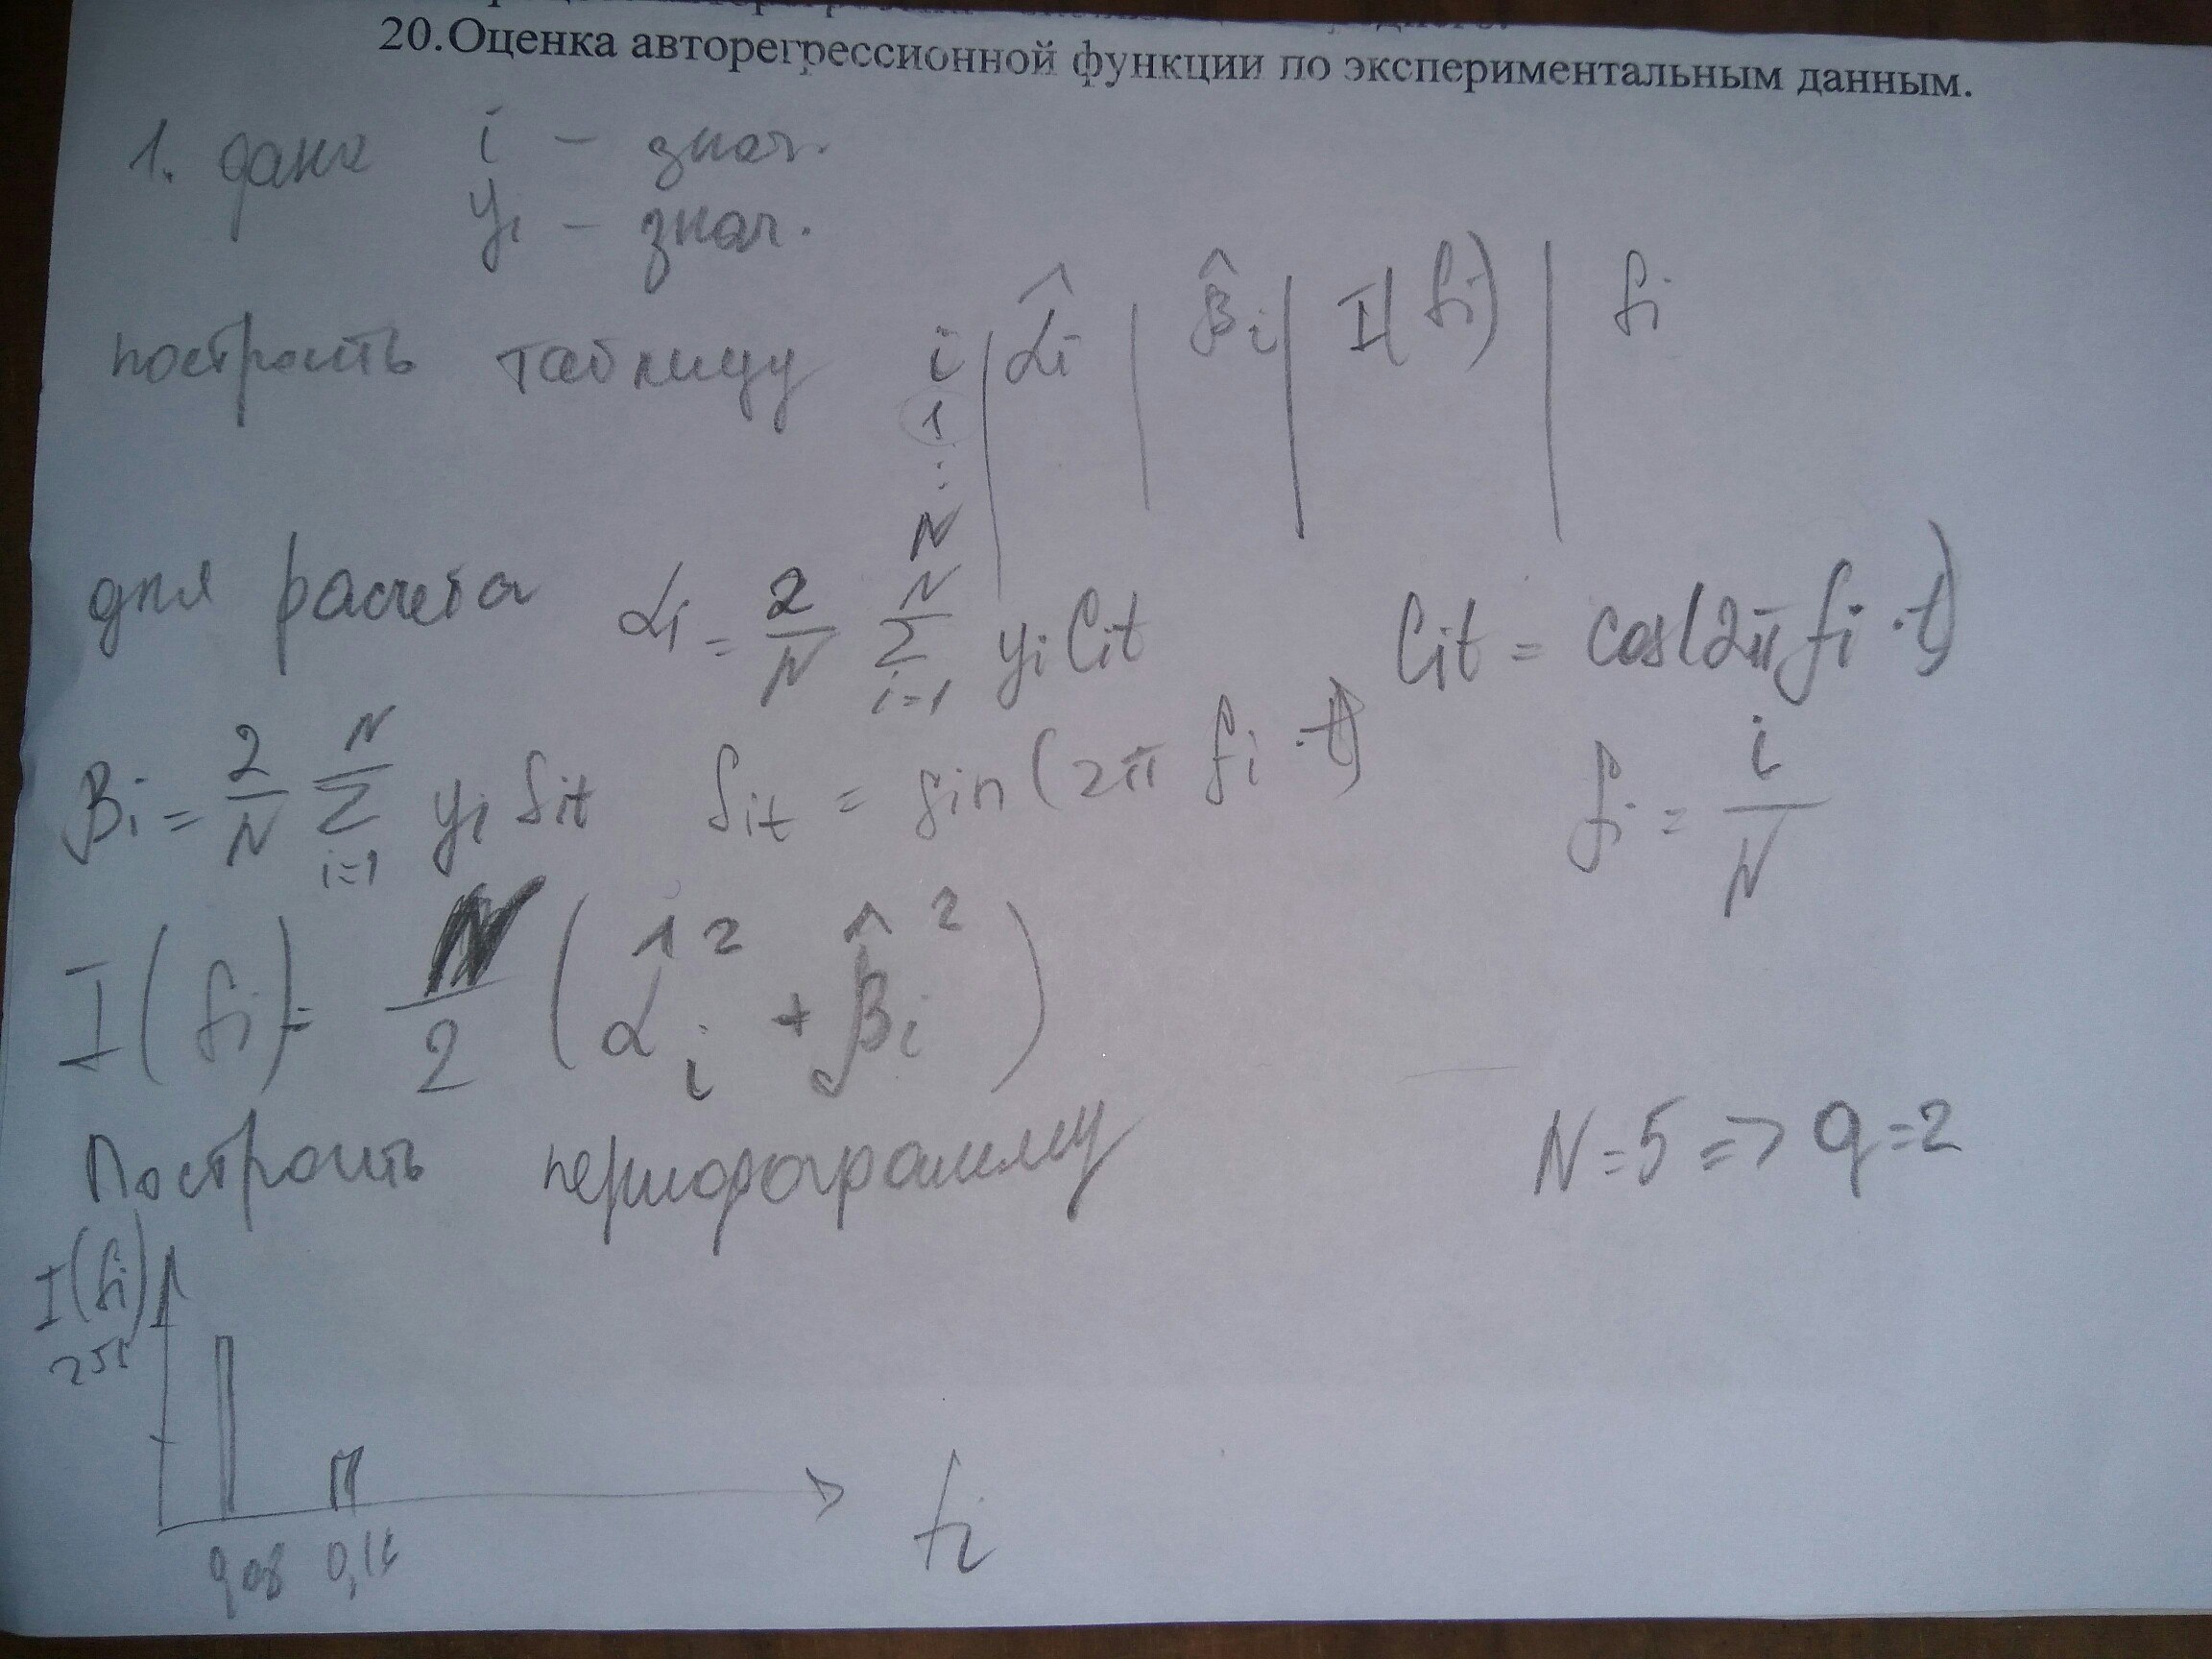 20.Оценка авторегрессионной функции по экспериментальным данным.
1. дана i – знач.
yi – знач.
построить таблицу i | α̂i | β̂i | I(fi) | fi
1
⋮
N
для расчета αi = 2/N Σ(i=1..N) yi Cit Cit = cos(2π fi · t)
βi = 2/N Σ(i=1..N) yi Sit Sit = sin(2π fi · t) fi = i/N
I(fi) = N/2 (α̂i² + β̂i²)
Построить периодограмму N=5 => q=2
I(fi)
0,08
fi